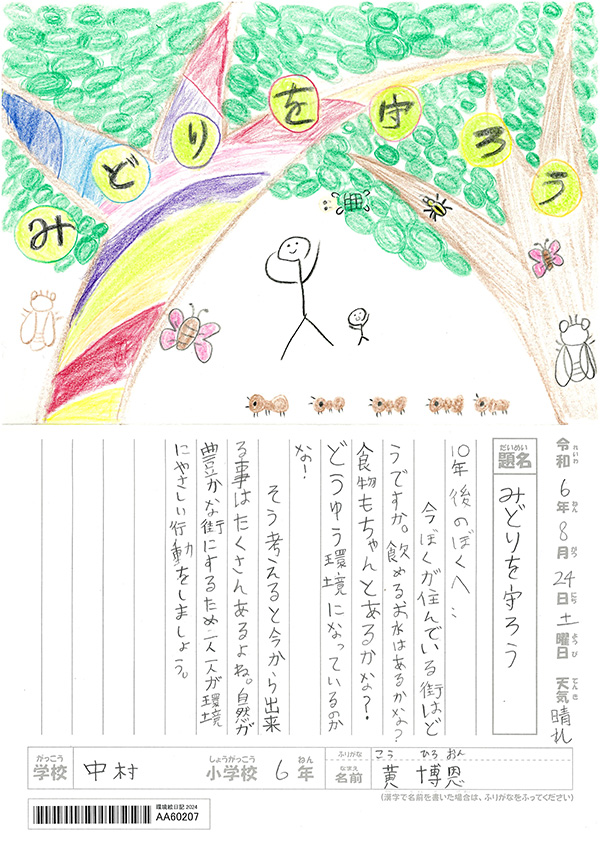 みどりを守ろう
令和6年8月24日土曜日 天気晴れ
れいわ ねん がつ にち ようび てんき
だいめい
題名
みどりを守ろう
10年後のぼくへ…
今ぼくが住んでいる街はど
うですか。飲めるお水はあるかな?
食物もちゃんとあるかな?
どうゆう環境になっているのか
な!
そう考えると今から出来
る事はたくさんあるよね。自然が
豊かな街にするため一人一人が環境
にやさしい行動をしましょう。
がっこう
学校
中村
しょうがっこう
小学校
6
ねん
年
ふりがな
こう ひろおん
なまえ
名前
黄 博恩
(漢字で名前を書いた場合は、ふりがなをふってください)
環境絵日記 2024
AA60207